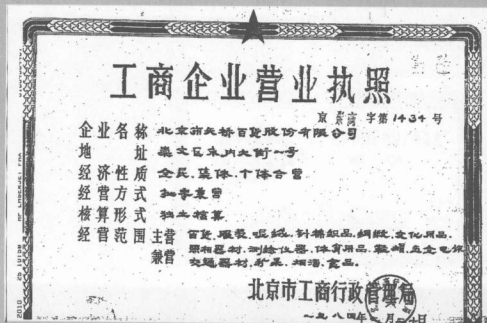 工商企业营业执照
京 字第1434号
企业名称 北京市天桥百货股份有限公司
地址 崇文区永内大街一号
经济性质 全民、集体、个体合营
经营方式 批零兼营
核算形式 独立核算
经营范围 主营 百货、服装、呢绒、针棉织品、绸缎、文化用品、
照相器材、测绘仪器、体育用品、鞋帽、五金电
兼营 交通器材、烟酒、食品。
北京市工商行政管理局
一九八四年